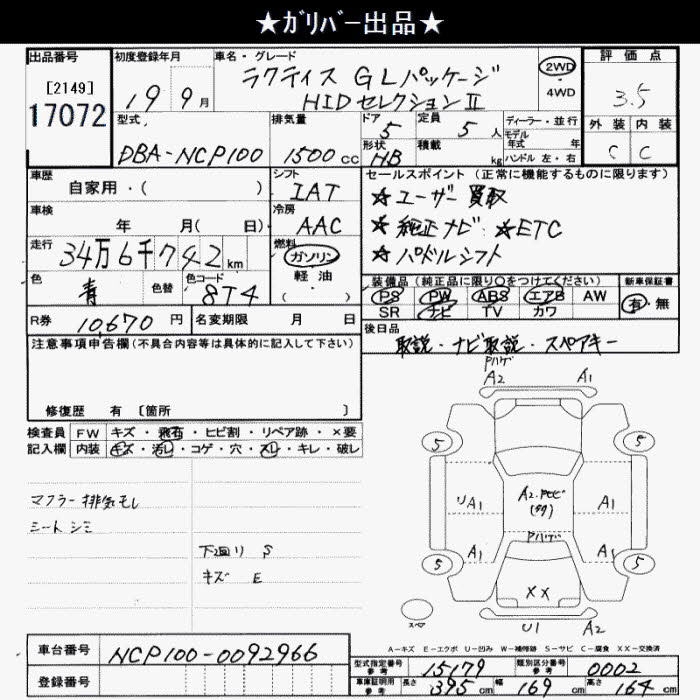 ★ガリバー出品★
出品番号
[2149]
17072
初度登録年月
19 9月
車名・グレード
ラクティス GLパッケージ
HIDセレクションⅡ
2WD
4WD
評価点
3.5
外装 内装
C C
型式
DBA-NCP100
排気量
1500cc
ドア
5
定員
5人
形状
HB
積載
kg
ディーラー・並行
モデル
年式 年
ハンドル 左・右
車歴
自家用・( )
シフト
IAT
車検
年 月( 日)
冷房
AAC
走行
34万6千742km
燃料
ガソリン
軽油
( )
色
青
色替
色コード
8T4
セールスポイント(正常に機能するものに限ります)
☆ユーザー買取
☆純正ナビ・☆ETC
☆パドルシフト
装備品(純正品に限り○をつけてください)
PS PW ABS エアB AW
SR ナビ TV カワ
新車保証書
有・無
R券 10,670円
名変期限 月 日
後日品
取説・ナビ取説・スペアキー
注意事項申告欄(不具合内容等は具体的に記入して下さい)
修復歴 有 [箇所 ]
検査員
記入欄
FW キズ・飛石・ヒビ割・リペア跡・×要
内装 キズ・汚れ・コゲ・穴・スレ・キレ・破レ
マフラー排気モレ
シートシミ
下廻り S
キズ E
Pハゲ
A2 A1
5 5
リA1
A2.Pトビ
(多)
A1
Pハゲ
A1 A1
5 5
XX
スペア
U1 A2
A-キズ E-エクボ U-凹み W-補修跡 S-サビ C-腐食 XX-交換済
車台番号 NCP100-0092966
登録番号
型式指定番号
参考
15179
類別区分番号
参考
0002
車庫証明用
参考
長さ 395cm 幅 169cm 高さ 164cm